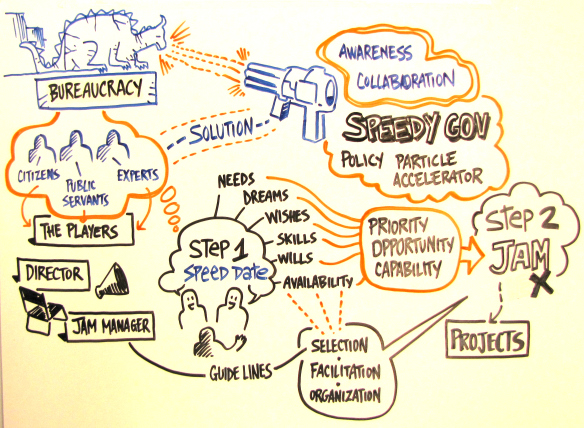 BUREAUCRACY
AWARENESS
COLLABORATION
SOLUTION
SPEEDY GOV
POLICY PARTICLE
ACCELERATOR
CITIZENS
PUBLIC
SERVANTS
EXPERTS
THE PLAYERS
DIRECTOR
JAM MANAGER
STEP 1
SPEED DATE
NEEDS
DREAMS
WISHES
SKILLS
WILLS
AVAILABILITY
PRIORITY
OPPORTUNITY
CAPABILITY
STEP 2
JAM
PROJECTS
GUIDE LINES
SELECTION
FACILITATION
ORGANIZATION